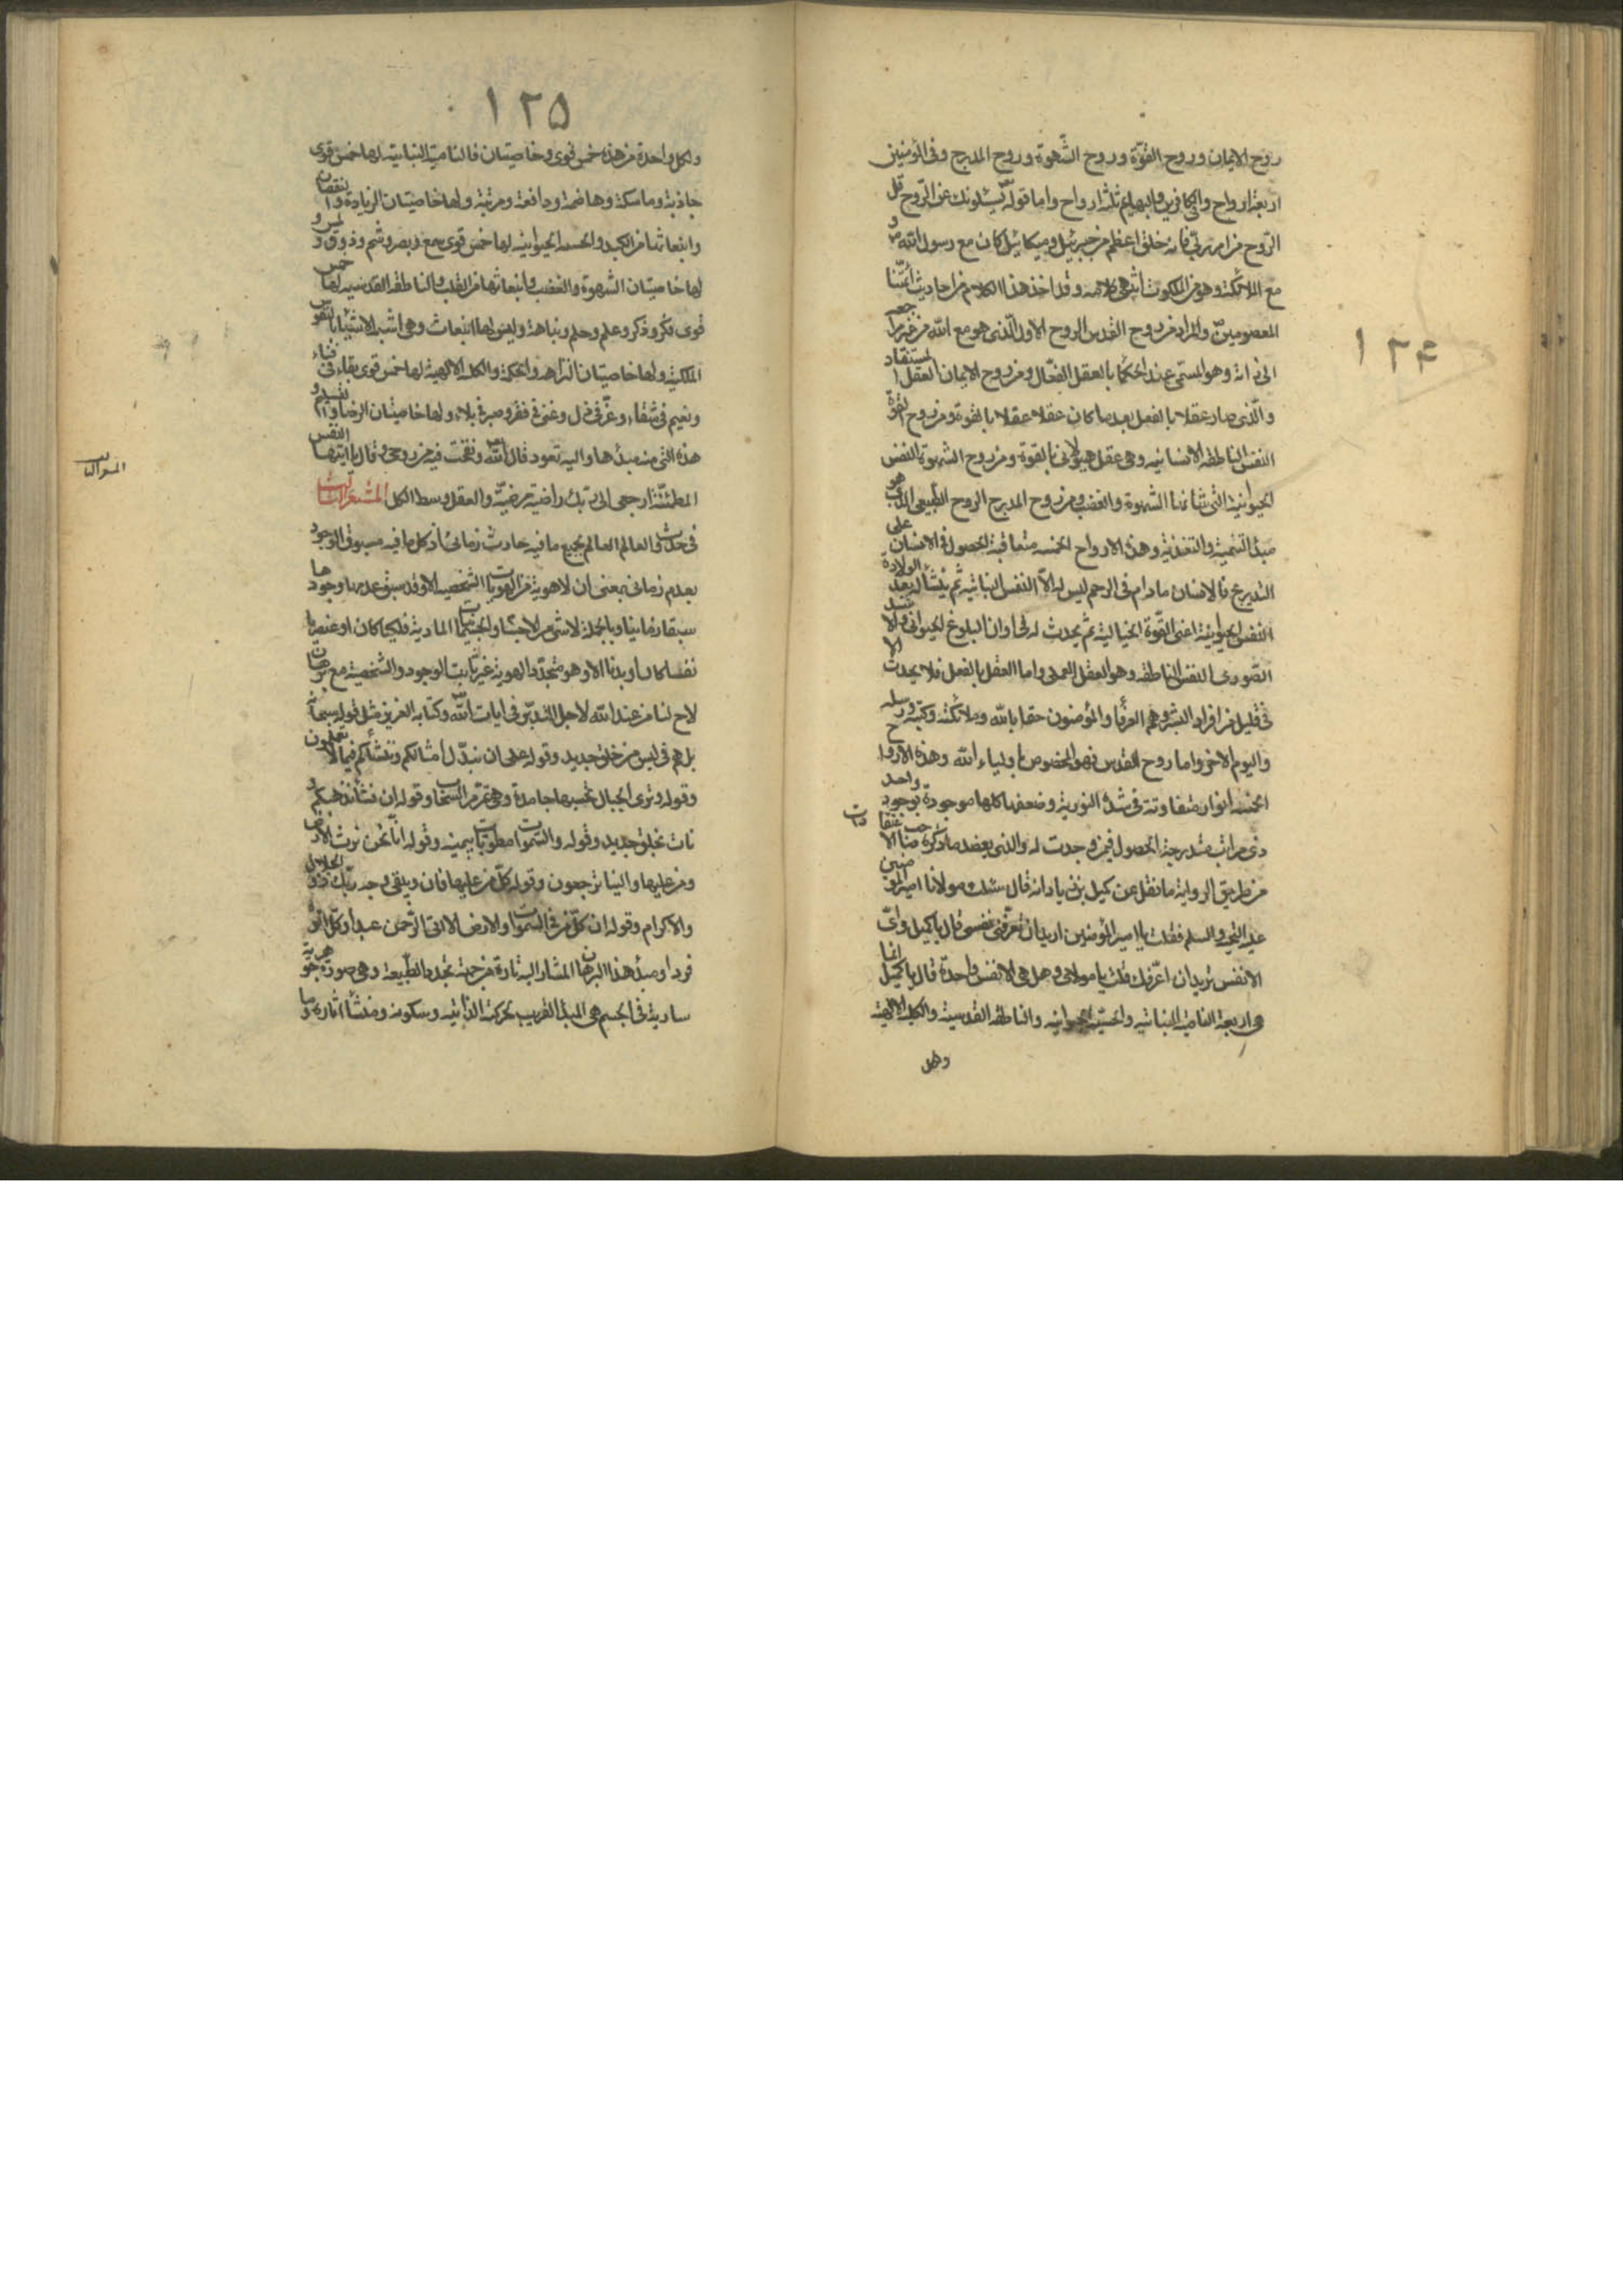 ١٢۴
روح الايمان وروح القوّة وروح الشّهوة وروح المدرج وفى المؤمنين
اربعة ارواح وفى الكافرين والبهايم ثلثة ارواح واما قوله يسئلونك عن الرّوح قل
الرّوح من امر ربّى فانه خلق اعظم من جبرئيل وميكائيل كان مع رسول الله ص وهو
مع الملائكة وهو من الملكوت انتهى كلامه وقد اخذ هذا الكلام من احاديث ائمّتنا
المعصومين والمراد من روح القدس الروح الاول الّذى هو مع الله من غير مراجعه
الى ذاته وهو المسمّى عند الحكما بالعقل الفعّال ومن روح الايمان العقل المستفاد
والّذى صار عقلا بالفعل بعد ما كان عقلا بالقوة ومن روح القوة
النفس الناطقه الانسانيه وهى عقل هيولانى بالقوة ومن روح الشهوة النفس
الحيوانية التى شانها الشهوة والغضب ومن روح المدرج الروح الطّبيعى الذى هو
مبدأ التنمية والتغذية وهذه الارواح الخمسه متعاقبة الحصول فى الانسان على
التدريج فالانسان مادام فى الرحم ليس له الّا النفس النباتيه ثم ينشأ له بعد الولادة
النفس الحيوانية اعنى القوّة الخياليه ثم يحدث له فى اوان البلوغ الحيوانى والاشتد
الصورى النفس الناطقه وهو العقل العملى واما العقل بالفعل فلا يحدث الا
فى قليل من افراد البشر وهم العرفا والمؤمنون حقا بالله وملائكته وكتبه ورسله
واليوم الاخر واما روح القدس فهو المخصوص باولياء الله وهذه الارواح
الخمسه انوار متفاوتة فى شدّة النورية وضعفها كلها موجودة بوجود واحد
ذى مراتب متدرجة الحصول فيمن وجدت له والذى يعضد ما ذكره
من طريق الرواية ما نقل عن كميل بن زياد انه قال سئلت مولانا امير المؤمنين
عليه التحيه والسلم فقلت يا امير المؤمنين اريد ان تعرّفنى نفسى قال يا كميل واىّ
الانفس تريد ان اعّرفك قلت يا مولاى وهل هى الا نفس واحدة قال يا كميل انما
هى اربعة النامية النباتيه والحسّيه الحيوانيه والناطقه القدسية والكليه الالهية
ولكل
١٢۵
ولكل واحدة من هذه خمس قوى وخاصيتان فالنامية النباتيه لها خمس قوى
جاذبة وماسكة وهاضمة ودافعة ومربّية ولها خاصيّتان الزيادة والنقصان
وانبعاثها من الكبد والحسيه الحيوانيه لها خمس قوى سمع وبصر وشم وذوق ولمس و
لها خاصيّتان الشهوة والغضب وانبعاثها من القلب والناطقه القدسيه لها خمس
قوى فكر وذكر وعلم وحلم ونباهة وليس لها انبعاث وهى اشبه الاشياء بالنفوس
الملكية ولها خاصيّتان النزاهه والحكمة والكليه الالهية لها خمس قوى بقاء فى فناء
ونعيم فى شقاء وعزّ فى ذل وغنى فى فقر وصبر فى بلاء ولها خاصيّتان الرضا والتسليم و
هذه التى منه مبدئها واليه تعود قال الله ونفخت فيه من روحى وقال يا ايتها النفس
المطمئنّة ارجعى الى ربّك راضية مرضيّة والعقل وسط الكل المشعر الثالث
المشعر الثالث
فى حدوث العالم العالم بجميع ما فيه حادث زمانى اذ كل ما فيه مسبوق الوجود
بعدم زمانى بمعنى ان لا هوية من الهويات الشخصيه الا وقد سبق عدمها وجودها
سبقا زمانيا وبالجملة لا شىء من الاجسام والجسمانيات المادية فلكيا كان او عنصريا
نفسا كان او بدنا الا وهو متجدّد الهوية غير ثابت الوجود والشخصية مع برهان
لاح لنا من عند الله لاجل التدبّر فى ايات الله وكتابه العزيز مثل قوله سبحانه
بل هم فى لبس من خلق جديد وقوله على ان نبدّل امثالكم وننشأكم فيما لا تعلمون
وقوله وترى الجبال تحسبها جامدة وهى تمرّ مرّ السحاب وقوله ان نشأ نذهبكم و
نات بخلق جديد وقوله والسّموات مطويّات بيمينه وقوله انّا نحن نرث الارض
ومن عليها والينا ترجعون وقوله كلّ من عليها فان ويبقى وجه ربّك ذو الجلال
والاكرام وقوله ان كلّ من فى السّموات والارض الا اتى الرّحمن عبدا وكلّ اتوه
فردا ومبدأ هذا البرهان المشار اليه تارة من جهة تجدد الطّبيعة وهى صورة جوهرية
سارية فى الجسم هى المبدأ القريب لحركته الذاتيه وسكونه ومنشأ اثاره وما